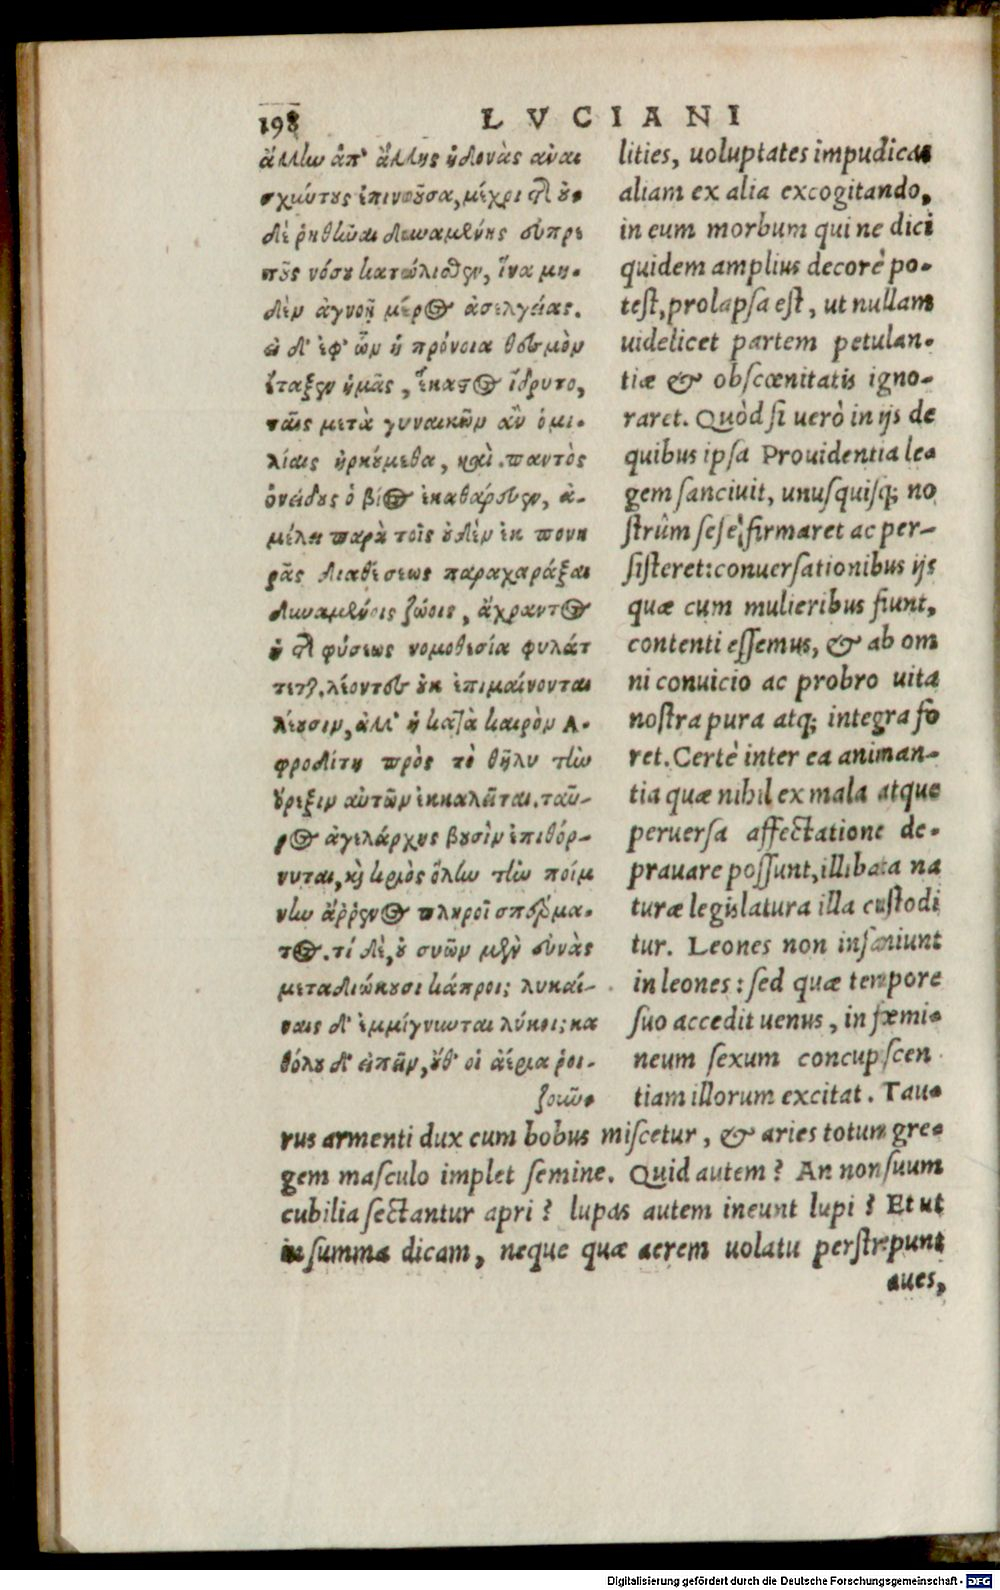 198 LVCIANI
ἄλλίω ἀπ' ἄλλης ἡδονὰς ἀναι
σχύντους ἐπινοοῦσα, μέχρι τῆς οὐ
δὲ ῥηθῆναι δυναμένης εὐπρε
πῶς νόσου κατώλισθεν, ἵνα μη-
δὲν ἀγνοῇ μέρος ἀσελγείας.
εἰ δ' ἐφ' ὧν ἡ πρόνοια θεσμὸν
ἔταξεν ἡμᾶς, ἕκαστος ἵδρυτο,
ταῖς μετὰ γυναικῶν ἂν ὁμι-
λίαις ἠρκούμεθα, καὶ παντὸς
ὀνείδους ὁ βίος ἐκαθάρευεν, ἀ-
μέλει παρὰ τοῖς οὐδὲν ἐκ πονη
ρᾶς διαθέσεως παραχαράξαι
δυναμένοις ζώοις, ἄχραντος
ἡ τῆς φύσεως νομοθεσία φυλάτ
τεται. λέοντες οὐκ ἐπιμαίνονται
λέουσιν, ἀλλ' ἡ κατὰ καιρὸν Α-
φροδίτη πρὸς τὸ θῆλυ τὴν
ὄρεξιν αὐτῶν ἐκκαλεῖται. ταῦ-
ρος ἀγελάρχης βουσὶν ἐπιθόρ-
νυται, καὶ κριὸς ὅλην τὴν ποίμ
νην ἄρρενος πληροῖ σπέρμα-
τος. τί δὲ, οὐ συῶν μὲν εὐνὰς
μεταδιώκουσι κάπροι; λυκαί-
ναις δ' ἐμμίγνυνται λύκοι; κα
θόλου δ' εἰπεῖν, οὔθ' οἱ ἀέρια ῥοι-
ζοῦν-
lities, uoluptates impudicas
aliam ex alia excogitando,
in eum morbum qui ne dici
quidem amplius decorè po-
test, prolapsa est, ut nullam
uidelicet partem petulan-
tiæ & obscœnitatis igno-
raret. Quòd si uerò in ijs de
quibus ipsa Prouidentia le-
gem sanciuit, unusquisq; no
strûm sese firmaret ac per-
sisteret: conuersationibus ijs
quæ cum mulieribus fiunt,
contenti essemus, & ab om
ni conuicio ac probro uita
nostra pura atq; integra fo
ret. Certè inter ea animan-
tia quæ nihil ex mala atque
peruersa affectatione de-
prauare possunt, illibata na
turæ legislatura illa custodi
tur. Leones non insaniunt
in leones: sed quæ tempore
suo accedit uenus, in fœmi-
neum sexum concupiscen
tiam illorum excitat. Tau-
rus armenti dux cum bobus miscetur, & aries totum gre-
gem masculo implet semine. Quid autem? An non suum
cubilia sectantur apri? lupas autem ineunt lupi? Et ut
in summa dicam, neque quæ aerem uolatu perstrepunt
aues,
Digitalisierung gefördert durch die Deutsche Forschungsgemeinschaft - DFG